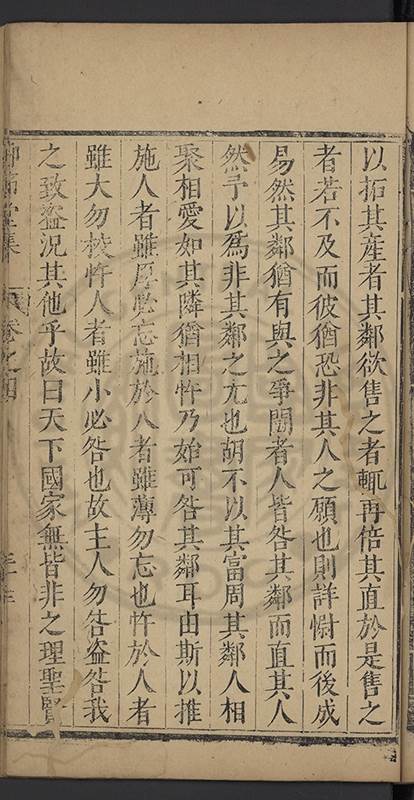 以拓其產者其鄰欲售之者輒再倍其直於是售之
者若不及而彼猶恐非其人之願也則詳慰而後成
易然其鄰猶有與之爭鬩者人皆咎其鄰而直其人
然予以爲非其鄰之尤也胡不以其富周其鄰人相
聚相愛如其隣猶相忤乃始可咎其鄰耳由斯以推
施人者雖厚必忘施於人者雖薄勿忘也忤於人者
雖大勿校忤人者雖小必咎也故主人勿咎盜咎我
之致盜況其他乎故曰天下國家無皆非之理聖賢
堂集 卷之四